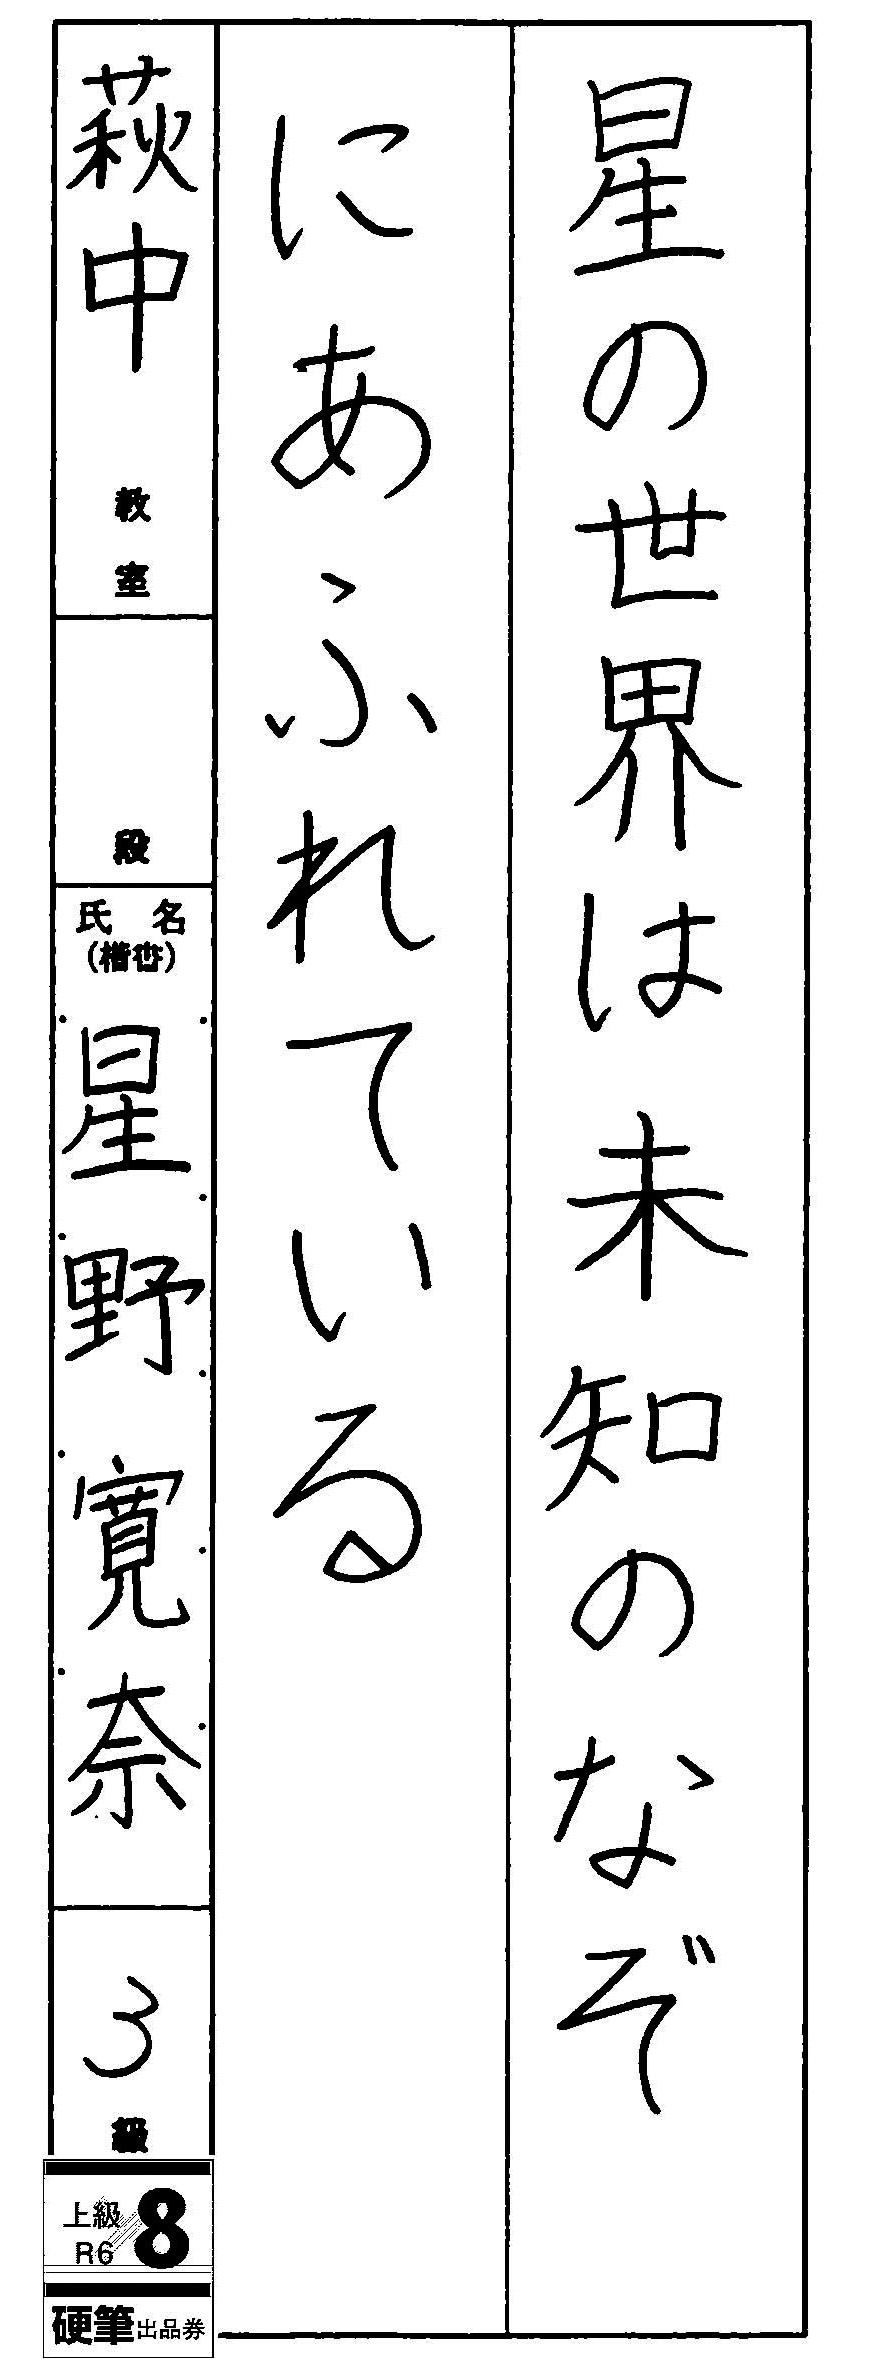 星の世界は未知のなぞ
にあふれている
萩中教室
段
氏名
(楷書)
星野寛奈
3級
上級
R6
8
硬筆出品券